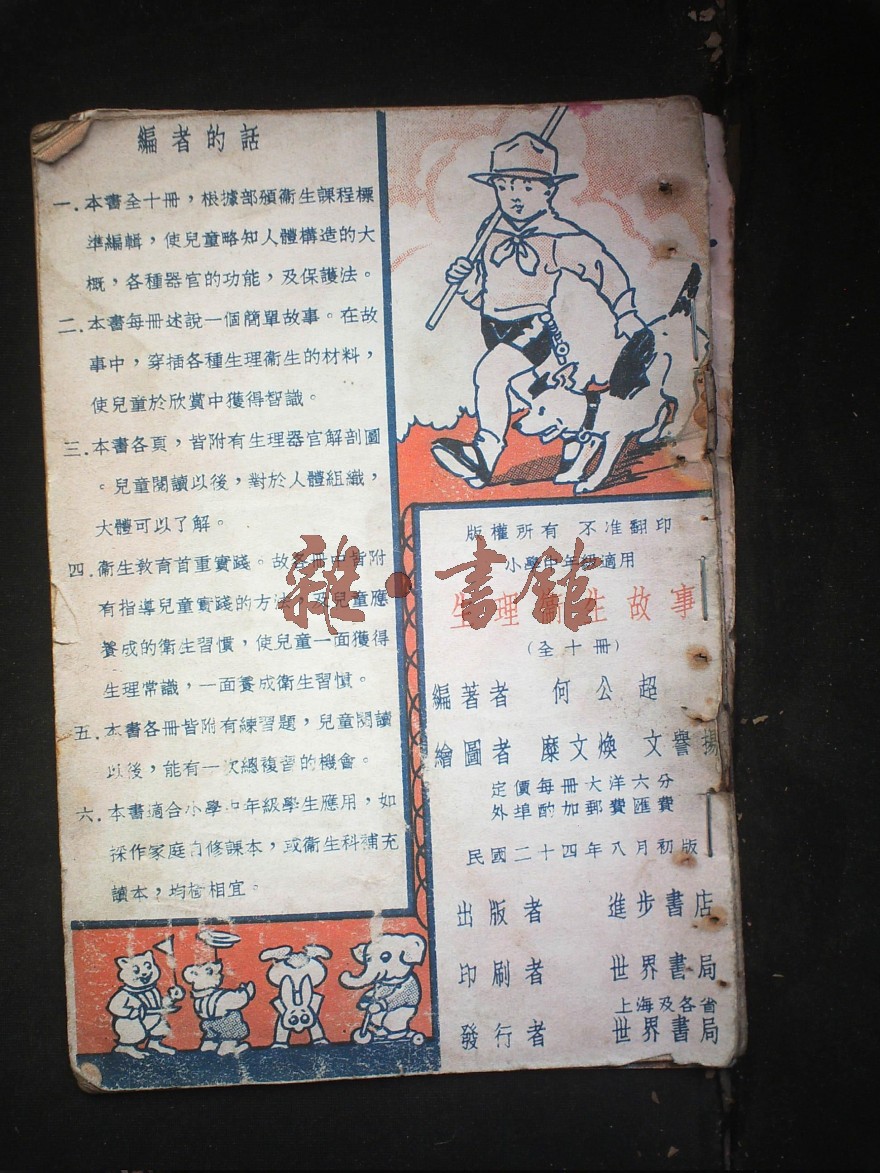 編者的話
一．本書全十冊，根據部頒衞生課程標
準編輯，使兒童略知人體構造的大
概，各種器官的功能，及保護法。
二．本書每冊述說一個簡單故事。在故
事中，穿插各種生理衞生的材料，
使兒童於欣賞中獲得智識。
三．本書各頁，皆附有生理器官解剖圖
。兒童閱讀以後，對於人體組織，
大體可以了解。
四．衞生教育首重實踐。故各冊中皆附
有指導兒童實踐的方法，及兒童應
養成的衞生習慣，使兒童一面獲得
生理常識，一面養成衞生習慣。
五．本書各冊皆附有練習題，兒童閱讀
以後，能有一次總複習的機會。
六．本書適合小學中年級學生應用，如
採作家庭自修課本，或衞生科補充
讀本，均極相宜。
版權所有 不准翻印
小學中年級適用
生理衞生故事
（全十冊）
編著者 何公超
繪圖者 糜文煥 文譽揚
定價每冊大洋六分
外埠酌加郵費匯費
民國二十四年八月初版
出版者 進步書店
印刷者 世界書局
上海及各省
發行者 世界書局
雜·書館